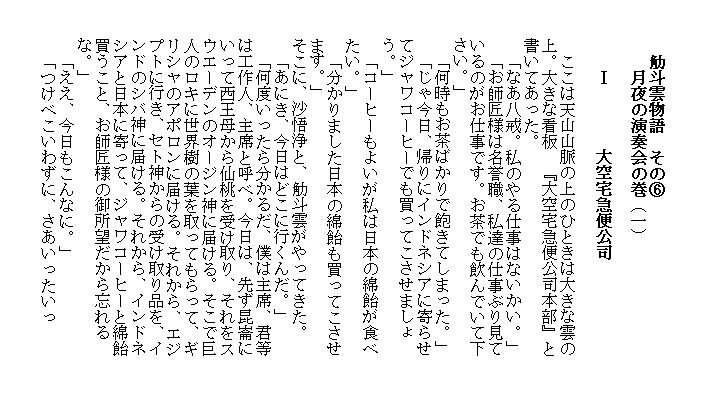 觔斗雲物語　その⑥
月夜の演奏会の巻（一）
Ⅰ　　大空宅急便公司
ここは天山山脈の上のひときは大きな雲の
上。大きな看板　『大空宅急便公司本部』と
書いてあった。
「なあ八戒。私のやる仕事はないかい。」
「お師匠様は名誉職、私達の仕事ぶり見て
いるのがお仕事です。お茶でも飲んでいて下
さい。」
「何時もお茶ばかりで飽きてしまった。」
「じゃ今日、帰りにインドネシアに寄らせ
てジャワコーヒーでも買ってこさせましょ
う。」
「コーヒーもよいが私は日本の綿飴が食べ
たい。」
「分かりました日本の綿飴も買ってこさせ
ます。」
そこに、沙悟浄と、觔斗雲がやってきた。
「あにき、今日はどこに行くんだ。」
「何度いったら分かるだ、僕は主席、君等
は工作人、主席と呼べ。今日は、先ず崑崙に
いって西王母から仙桃を受け取り、それをス
ウエーデンのオージン神に届ける。そこで巨
人のロキに世界樹の葉を取ってもらって、ギ
リシャのアポロンに届ける。それから、エジ
プトに行き、セト神からの受け取り品を、イ
ンドのシバ神に届ける。それから、インドネ
シアと日本に寄って、ジャワコーヒーと綿飴
買うこと、お師匠様の御所望だから忘れる
な。」
「ええ、今日もこんなに。」
「つけべこいわずに、さあいったいっ